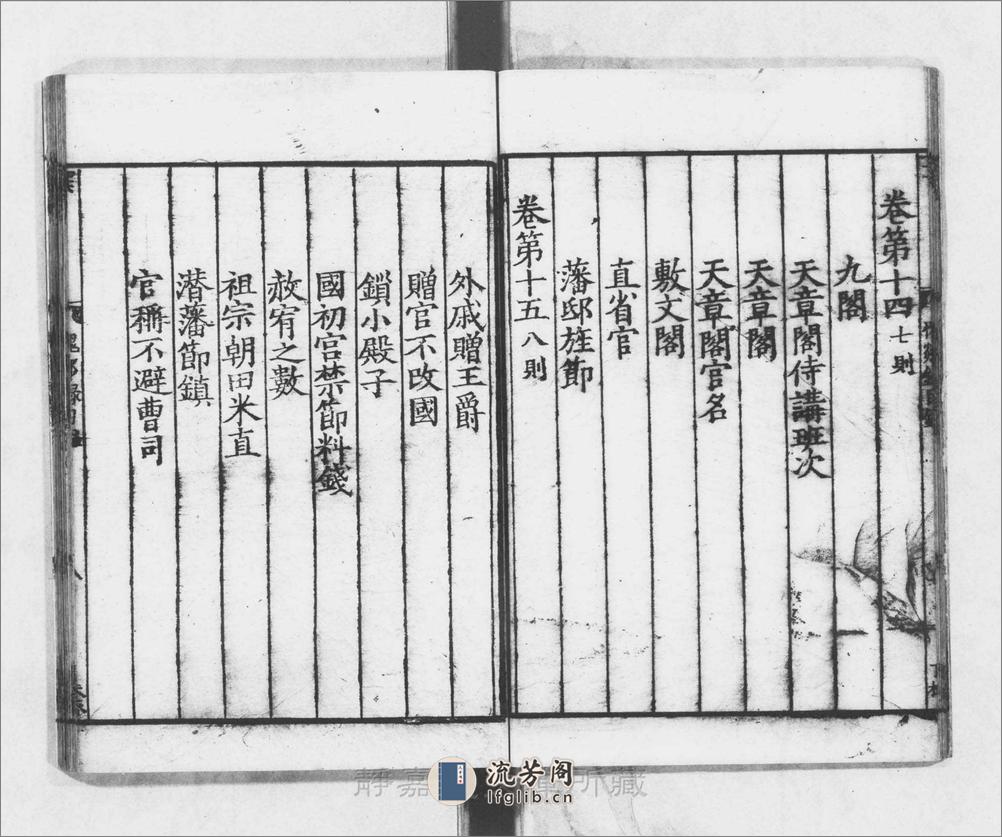 卷第十四 七則
九閣
天章閣侍講班次
天章閣
天章閣官名
敷文閣
直省官
藩邸旌節
卷第十五 八則
外戚贈王爵
贈官不改國
鎖小殿子
國初宮禁節料錢
赦宥之數
祖宗朝田米直
潛藩節鎮
官稱不避曹司
八
靜嘉
所藏
流芳阁
lfglib.cn